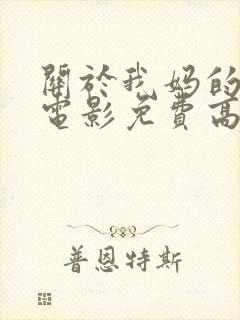 關於我媽的
電影免費高
普恩特斯